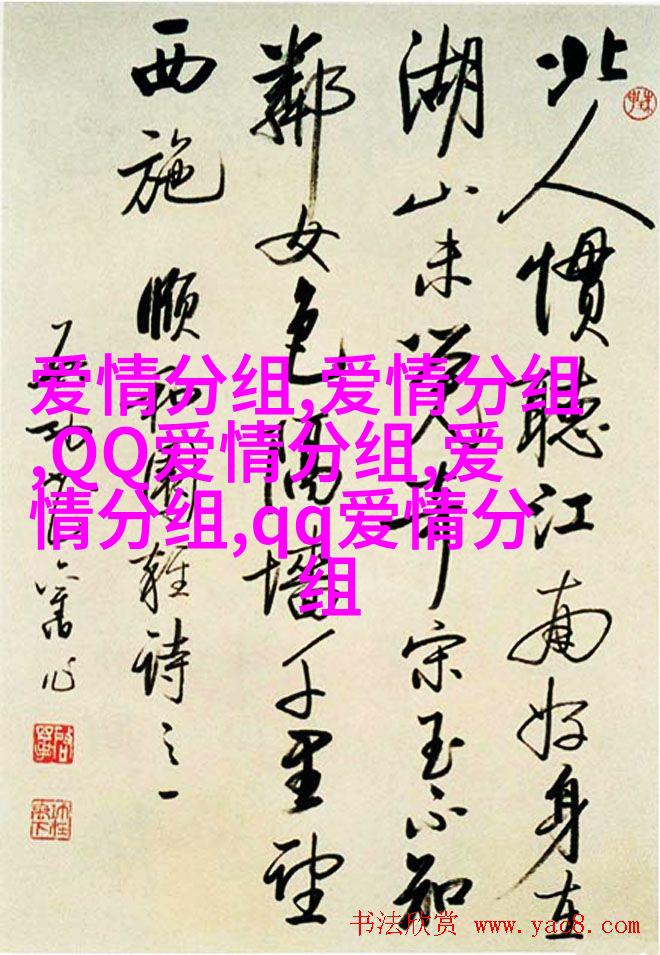 北人慣聽江南好身在
湖山未覺奇宋玉不知
鄰女色隔墙千里望
西施 頤和園雜詩之一
舊作
爱情分组,爱情分组
,QQ爱情分组,爱
情分组,qq爱情分
组
书法欣赏 www.yac8.com